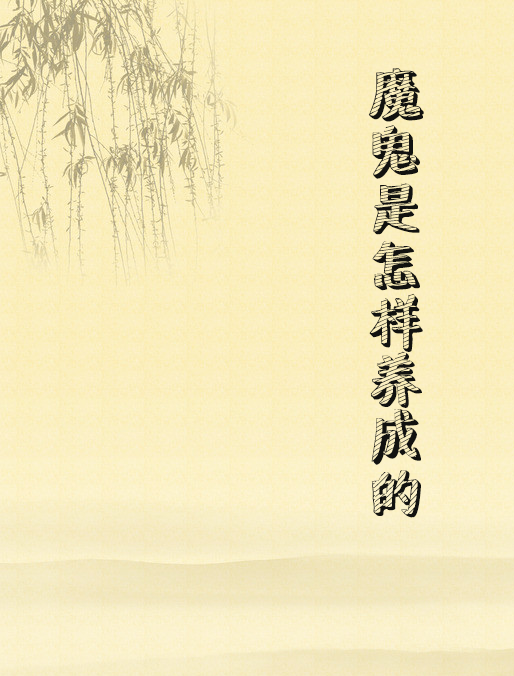 魔鬼是怎样养成的